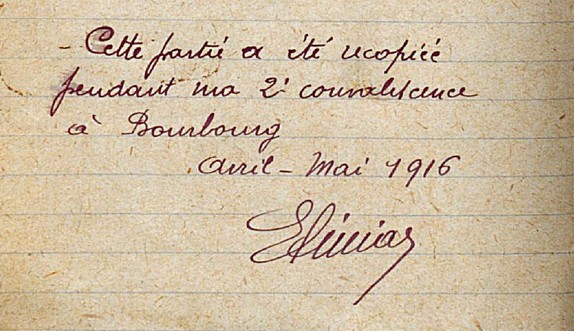 - Cette partie a été recopiée
pendant ma 2e convalescence
à Bourbourg
Avril - Mai 1916